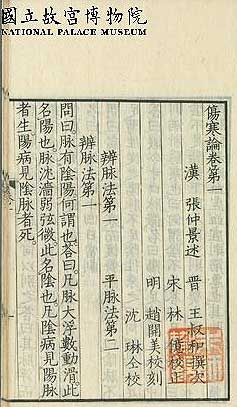 國立故宮博物院
NATIONAL PALACE MUSEUM
傷寒論卷第一
漢 張仲景述 晉 王叔和撰次
宋 林 億校正
明 趙開美校刻
沈 琳仝校
辨脉法第一 平脉法第二
辨脉法第一
問曰脉有陰陽何謂也荅曰凡脉大浮數動滑此
名陽也脉沈濇弱弦微此名陰也凡陰病見陽脉
者生陽病見陰脉者死。